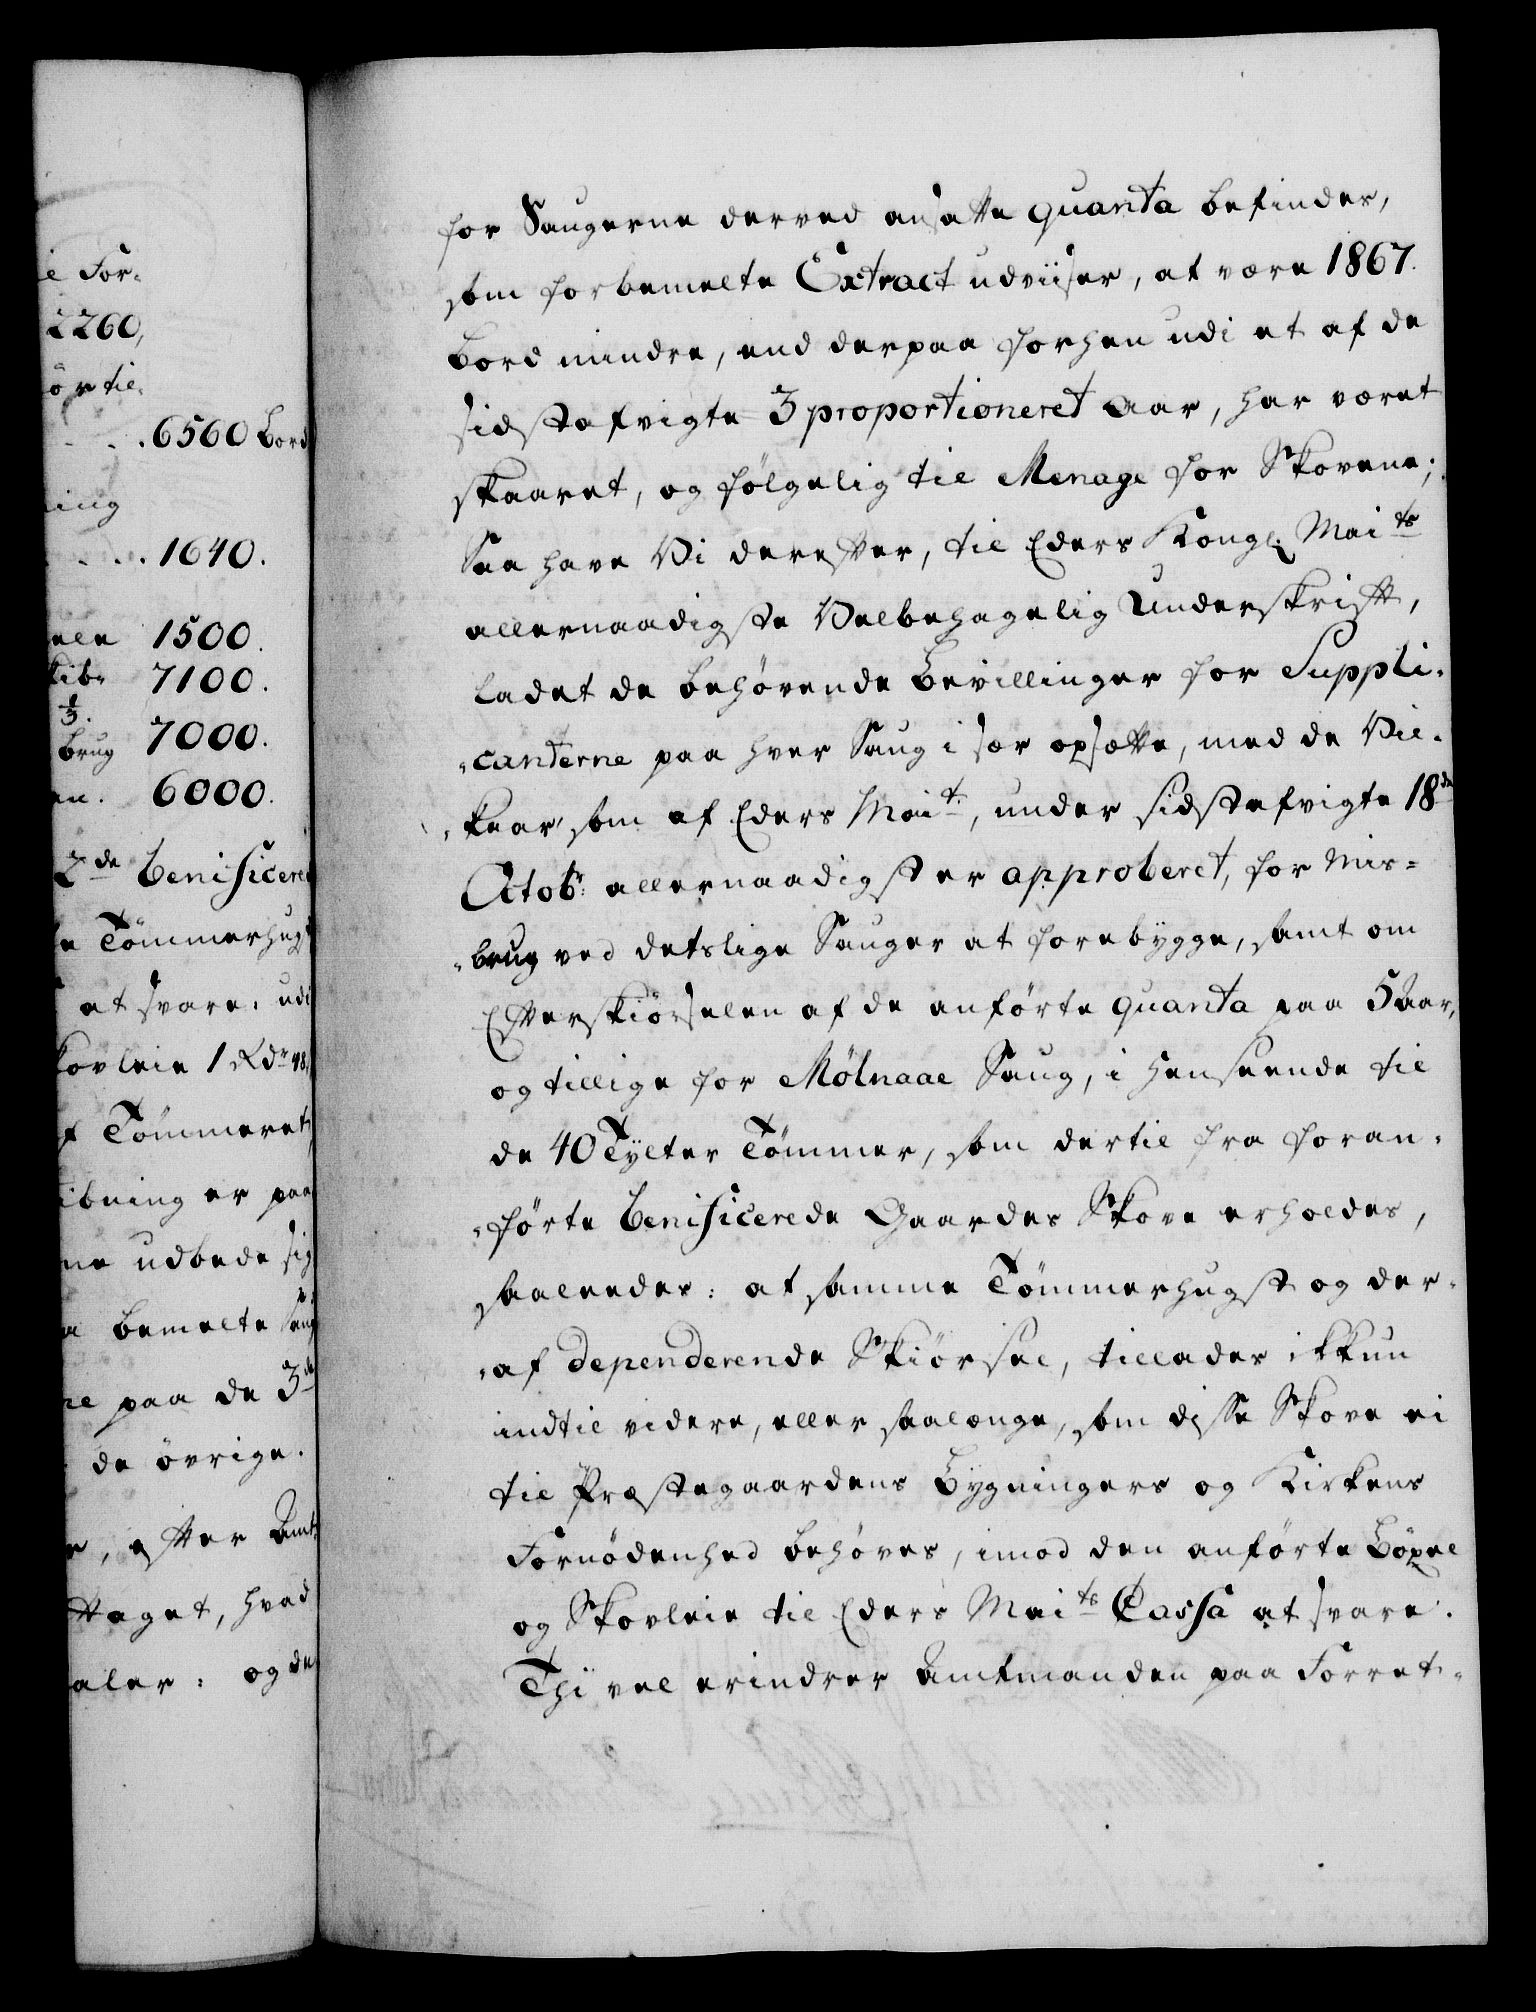 ie For-
2260,
ör til-
. . 6560 Bord
ning
. . . 1640.
ele 1500.
kib- 7100.
1/3.
brug 7000.
en. 6000.
2de benificered
e Tömmerhugst
at svare: udi
kovleie 1 Rdr 48
f Tömmeret,
ibning er paa
ne udbede sig
a bemelte Saug
ne paa de 3de
de övrige.
e, efter Amt-
ttaget, hvad
aler: og de
for Saugerne derved ansatte quanta befindes,
som forbemelte Extract udviiser, at være 1867.
Bord mindre, end derpaa forhen udi et af de
sidstafvigte 3 proportioneret Aar, har været
skaaret, og fölgelig til Menage for Skovene;
Saa have Vi derefter, til Eders Kongl. Maits
allernaadigste Velbehagelig Underskrift,
ladet de behövende Bevillinger for Suppli-
-canterne paa hver Saug i sær opsætte, med de Vil-
-kaar, som af Eders Mait., under sidstafvigte 18de
Octobr: allernaadigst er approberet, for Mis-
-brug ved detslige Sauger at forebygge, samt om
Efterskiörselen af de anförte quanta paa 5 Aar,
og tillige for Mölnaae Saug, i Henseende til
de 40 Tylter Tömmer, som dertil fra foran-
-förte benificerede Gaardes Skove erholdes,
saaledes: at samme Tömmerhugst og der-
-af dependerende Skiörsel, tillades ikkun
indtil videre, eller saalænge, som disse Skove ei
til Præstegaardens Bygningers og Kirkens
Fornödenhed behöves, imod den anförte Böxel
og Skovleie til Eders Maits Cassa at svare.
Thi vel erindrer Amtmanden paa Forret-